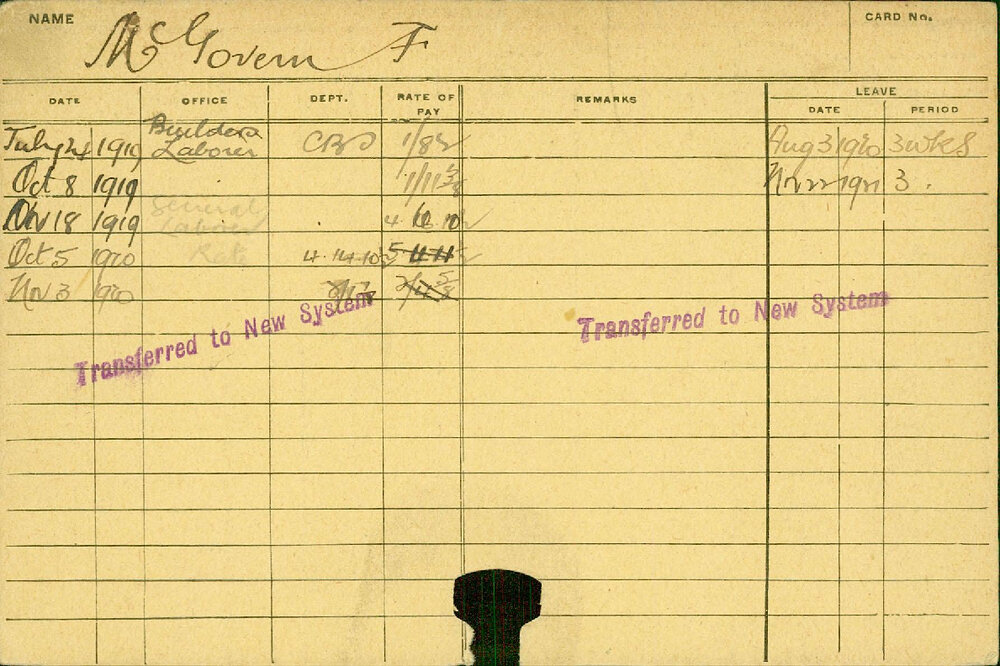 NAME
CARD No.
McGovern F
DATE OFFICE DEPT. RATE OF PAY REMARKS LEAVE
DATE PERIOD
July 24 1919 Builders Laborer 1/8½ Aug 3 1920 3 wks
Oct 8 1919 1/11 Nov 22 1921 3.
Nov 18 1919 General Laborer
Oct 5 1920 Rate 4.14.10½
Nov 3 1920
Transferred to New System
Transferred to New System